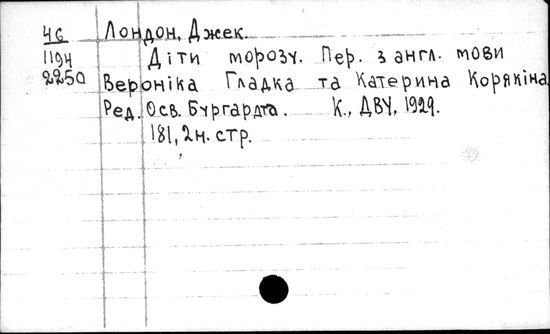 46 Лондон, Джек.
1194 Діти морозу. Пер. з англ. мови
2250 Вероніка Гладка та Катерина Корякіна.
Ред. Осв. Бургардта. К., ДВУ, 1929.
181, 2н. стр.